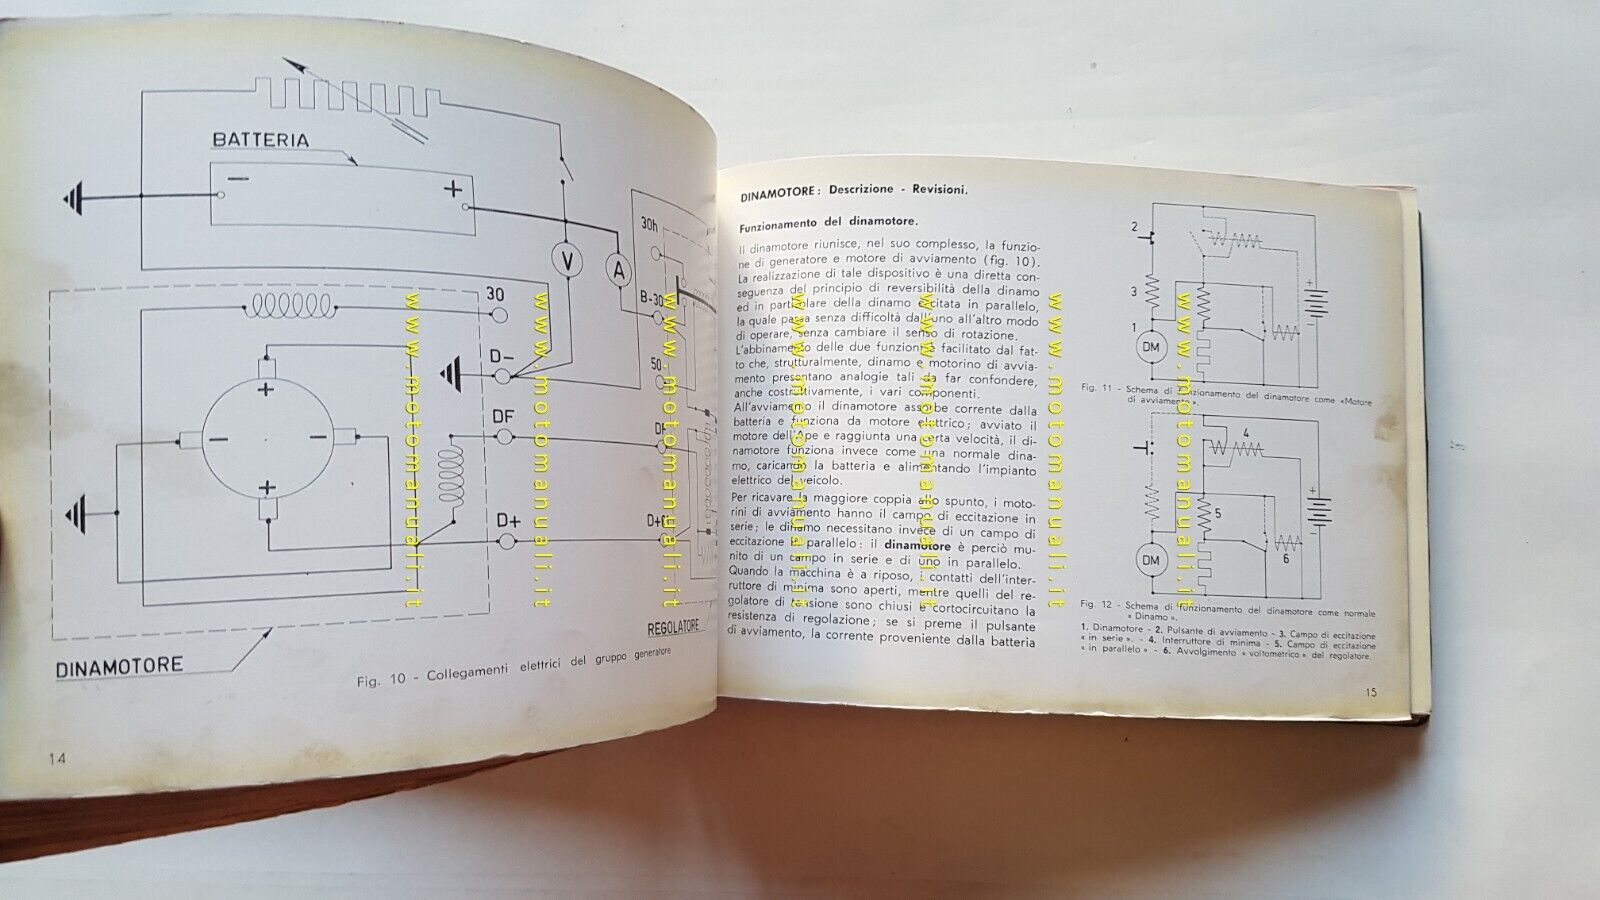 BATTERIA
−
+
30h
V
A
30
B-30
D−
50
DF
DF
+
−
−
+
D+
D+
REGOLATORE
DINAMOTORE
Fig. 10 - Collegamenti elettrici del gruppo generatore
14
DINAMOTORE: Descrizione - Revisioni.
Funzionamento del dinamotore.
Il dinamotore riunisce, nel suo complesso, la funzio-
ne di generatore e motore di avviamento (fig. 10).
La realizzazione di tale dispositivo è una diretta con-
seguenza del principio di reversibilità della dinamo
ed in particolare della dinamo eccitata in parallelo,
la quale passa senza difficoltà dall'uno all'altro modo
di operare, senza cambiare il senso di rotazione.
L'abbinamento delle due funzioni è facilitato dal fat-
to che, strutturalmente, dinamo e motorino di avvia-
mento presentano analogie tali da far confondere,
anche costruttivamente, i vari componenti.
All'avviamento il dinamotore assorbe corrente dalla
batteria e funziona da motore elettrico; avviato il
motore dell'Ape e raggiunta una certa velocità, il di-
namotore funziona invece come una normale dina-
mo, caricando la batteria e alimentando l'impianto
elettrico del veicolo.
Per ricavare la maggiore coppia allo spunto, i moto-
rini di avviamento hanno il campo di eccitazione in
serie; le dinamo necessitano invece di un campo di
eccitazione in parallelo: il dinamotore è perciò mu-
nito di un campo in serie e di uno in parallelo.
Quando la macchina è a riposo, i contatti dell'inter-
ruttore di minima sono aperti, mentre quelli del re-
golatore di tensione sono chiusi e cortocircuitano la
resistenza di regolazione; se si preme il pulsante
di avviamento, la corrente proveniente dalla batteria
2
3
1
DM
+
−
Fig. 11 - Schema di funzionamento del dinamotore come «Motore
di avviamento».
4
5
6
DM
+
−
Fig. 12 - Schema di funzionamento del dinamotore come normale
« Dinamo ».
1. Dinamotore - 2. Pulsante di avviamento - 3. Campo di eccitazione
« in serie ». - 4. Interruttore di minima - 5. Campo di eccitazione
« in parallelo » - 6. Avvolgimento « voltometrico » del regolatore.
15
www.motomanuali.it
www.motomanuali.it
www.motomanuali.it
www.motomanuali.it
www.motomanuali.it
www.motomanuali.it
www.motomanuali.it